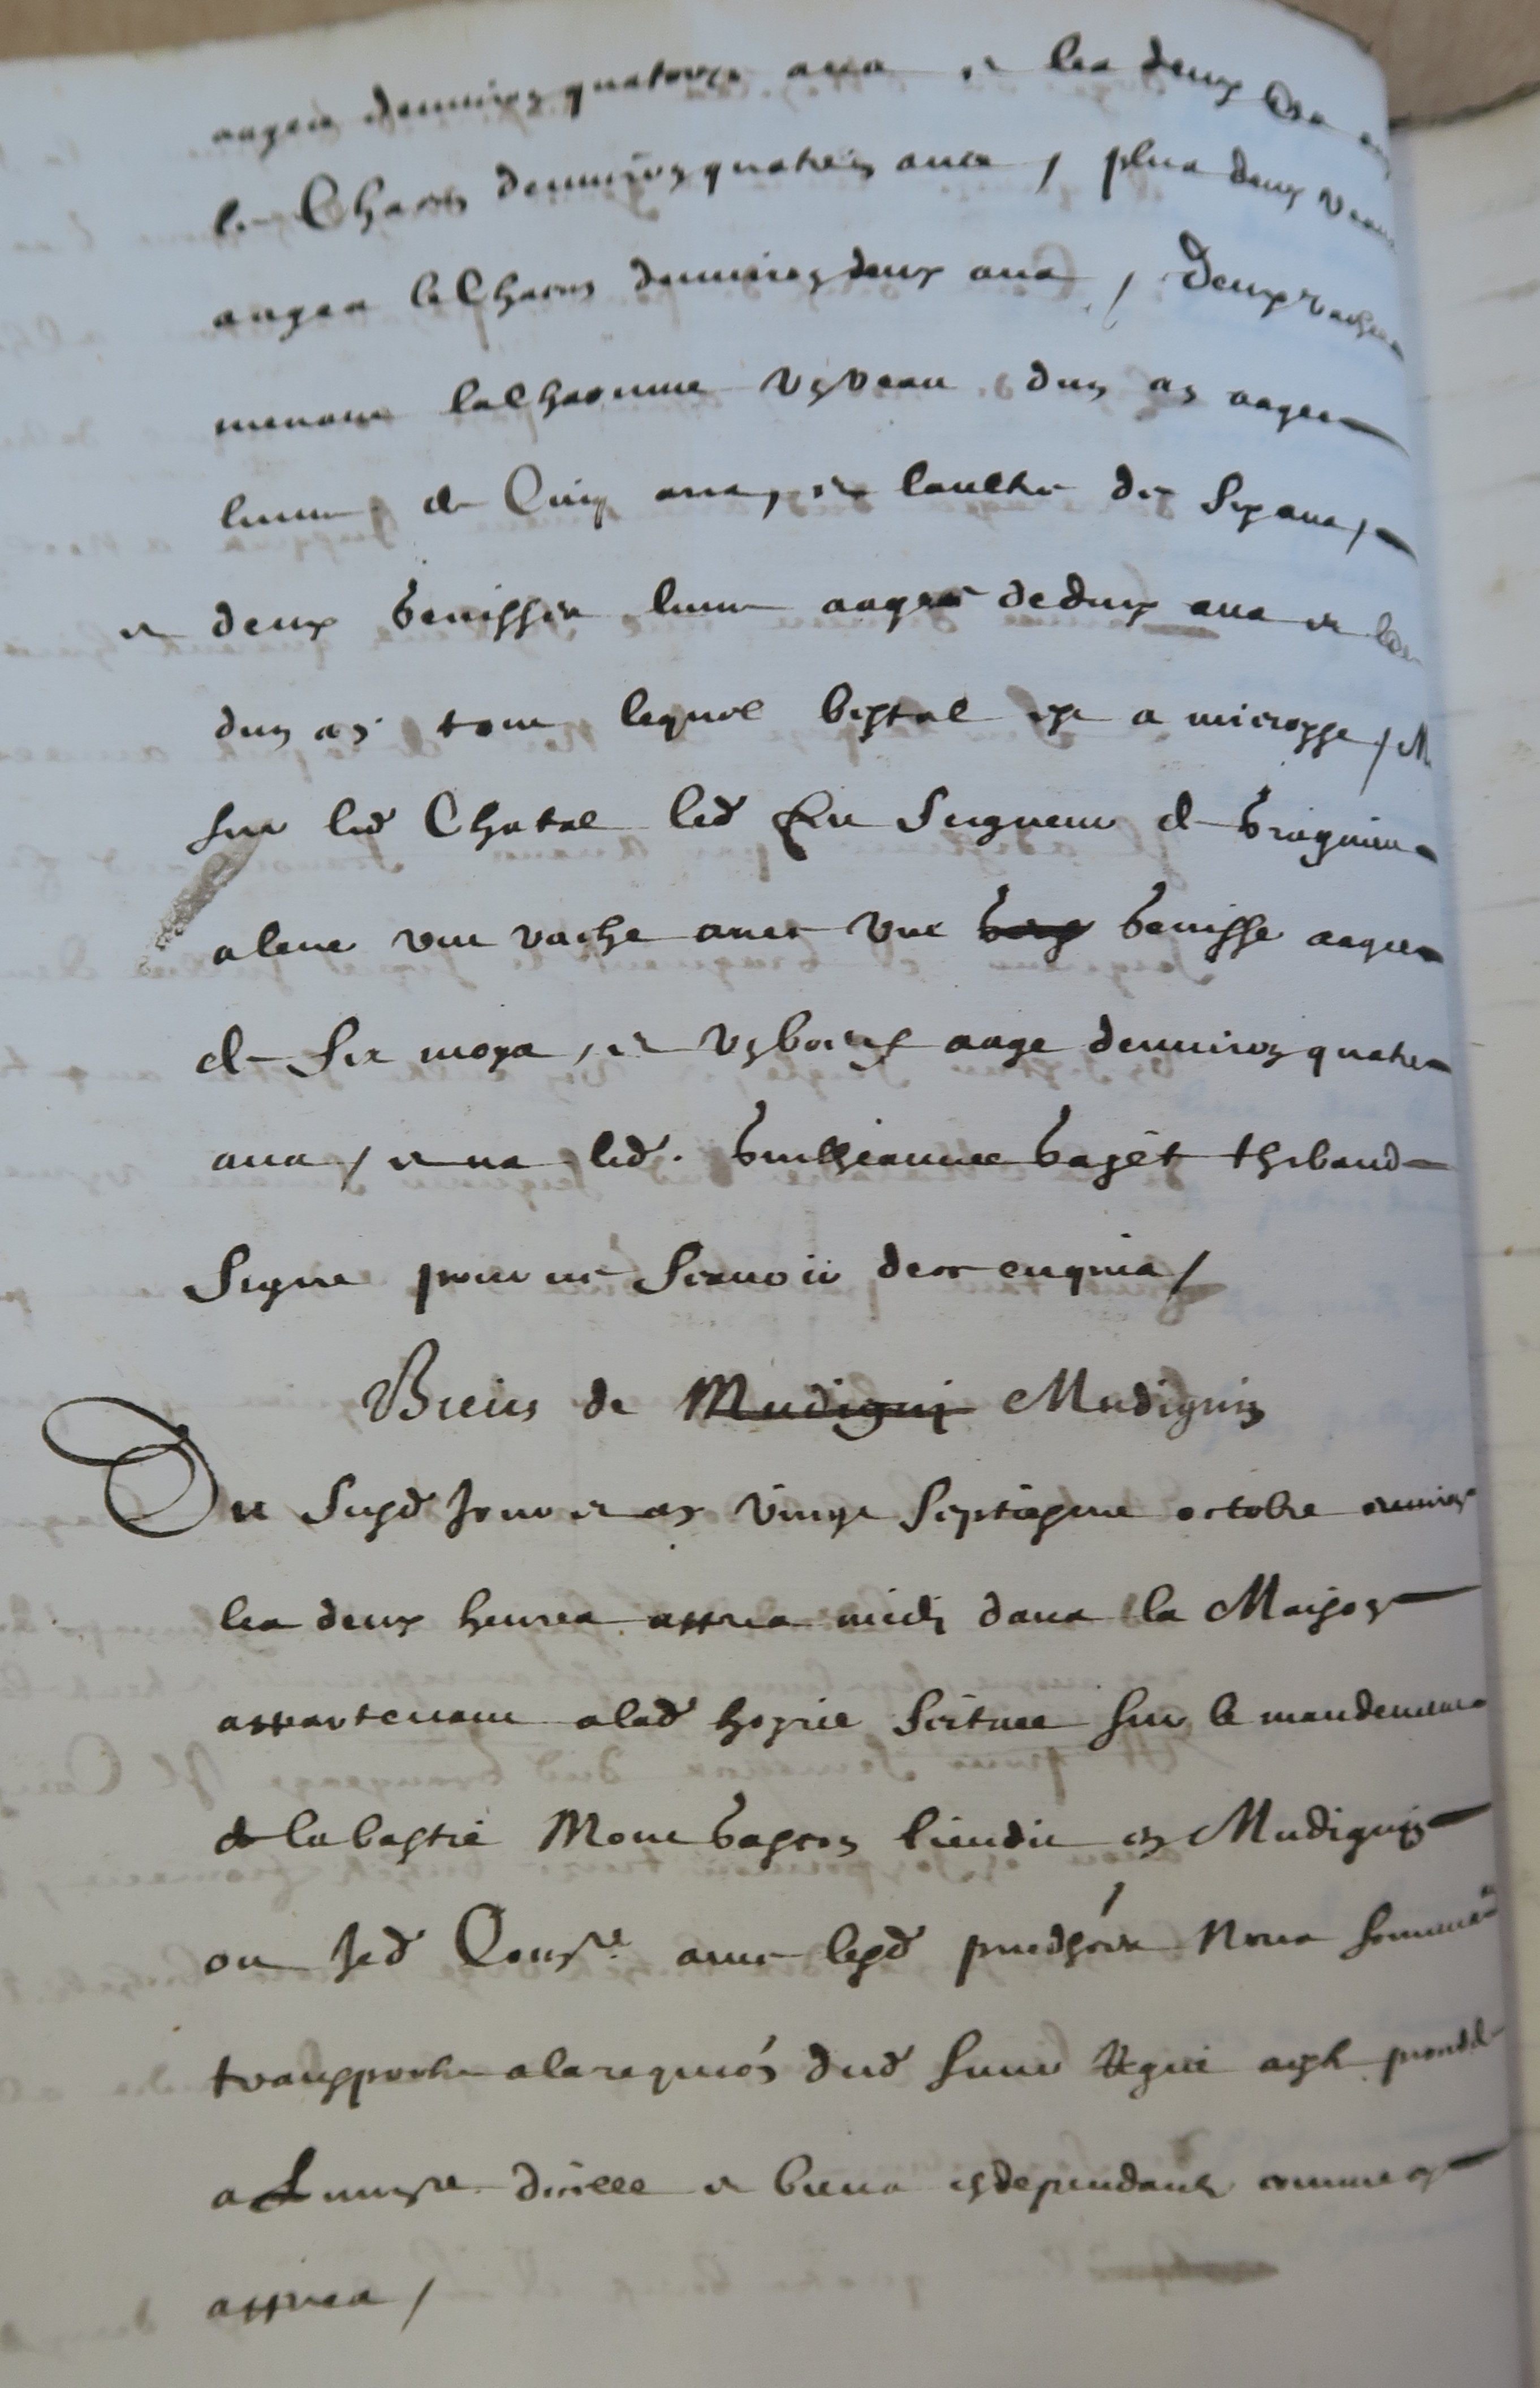 aages denviron quatorze ans et les deux
le Chacun denviron quatre ans / plus deux veaux
aages le Chacun denviron deux ans / Deux vaches
menant la Chacunne ung veau dun an aagee
lune de Cinq ans, et laultre de six ans /
et deux genisses lune aagee de deux ans et
dun an tout lequel bestal est a miecroyse /
sur led Chatal led feu Seigneur de
a leve une vache avec une genisse aagee
de six moys, et ung boeuf aage denviron quatre
ans / et na led. Guilheaume Gaget thibaud
Signe pour ne scavoir de ce enquis /
Biens de Mudigniz Mudignin
Du susd Jour et an vingt septiesme octobre environ
les deux heures appres midi dans la Maison
appartenant a lad hoyrie scituee sur le mandement
de la bastie Mont gascon lieudit en Mudignin
ou Jed Cons.re avec lesd preudhões Nous sommes
transporte a la requiõn dud sieur
a L inve.re dicelle et biens en dependants comme cy
appres /